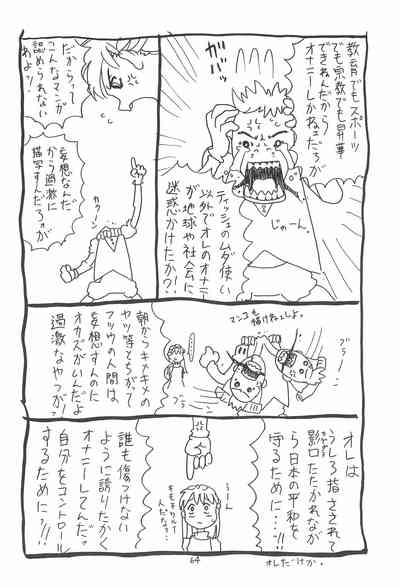 教育でもスポーツ
でも宗教でも昇華
できねんだから
オナニーしかねェだろが
じゃーん。
ティッシュのムダ使い
以外でオレのオナニー
が地球や社会に
迷惑かけたか?!
だからって
こんなマンガ
認められない
わよッ!
妄想なんだ
から過激に
描写すんだろうが
カターン
マンコも
描けねェしよ。
ブラーン
ブラーン
朝からキメキメの
ヤツ等とちがって
フツウの人間は、
妄想すんのに
オカズがいんだよ
過激なヤツが!
オレは
うしろ指さされて
影口たたかれなが
ら日本の平和を
守るために…!!
うーん
キモチワルー
んだなァ…
誰も傷つけない
ように誇りたかく
オナニーしてんだッ
自分をコントロール
するためにッ!!!
64
オレだけか。